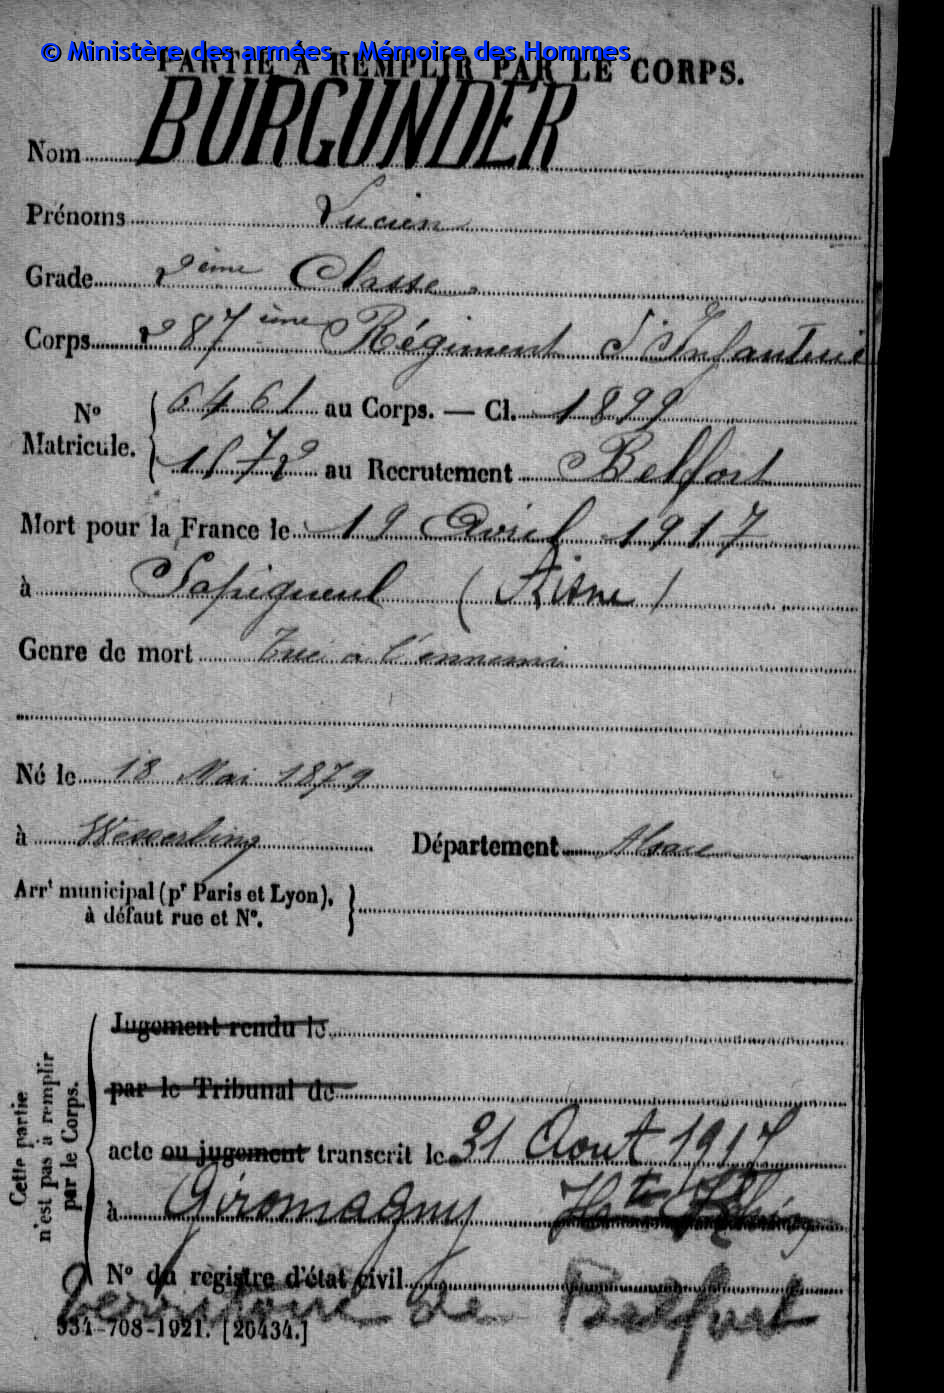 © Ministère des armées - Mémoire des Hommes
PARTIE A REMPLIR PAR LE CORPS.
Nom BURGUNDER
Prénoms Lucien
Grade 2ème Classe.
Corps 287ème Régiment d'Infanterie
No Matricule. { 6461 au Corps. — Cl. 1899
1572 au Recrutement Belfort
Mort pour la France le 19 Avril 1917
à Sapigneul (Aisne)
Genre de mort Tué à l'ennemi
Né le 18 Mai 1879
à Wesserling Département Alsace
Arrt municipal (pr Paris et Lyon),
à défaut rue et No. }
Cette partie
n'est pas à remplir
par le Corps.
Jugement rendu le
par le Tribunal de
acte ou jugement transcrit le 31 Aout 1917
à Giromagny Hte Rhin
No du registre d'état civil
territoire de Belfort
534-708-1921. [26434.]